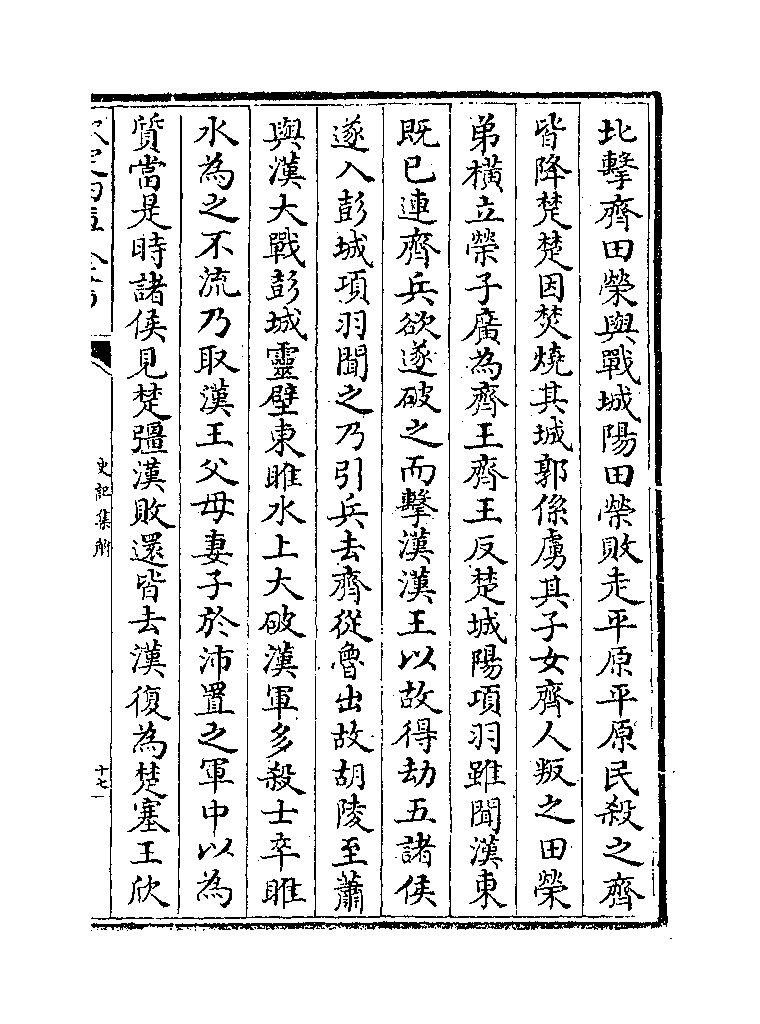 北擊齊田榮與戰城陽田榮敗走平原平原民殺之齊
皆降楚楚因焚燒其城郭係虜其子女齊人叛之田榮
弟橫立榮子廣為齊王齊王反楚城陽項羽雖聞漢東
既已連齊兵欲遂破之而擊漢漢王以故得劫五諸侯
遂入彭城項羽聞之乃引兵去齊從魯出故胡陵至蕭
與漢大戰彭城靈壁東睢水上大破漢軍多殺士卒睢
水為之不流乃取漢王父母妻子於沛置之軍中以為
質當是時諸侯見楚彊漢敗還皆去漢復為楚塞王欣
史記集解
十七